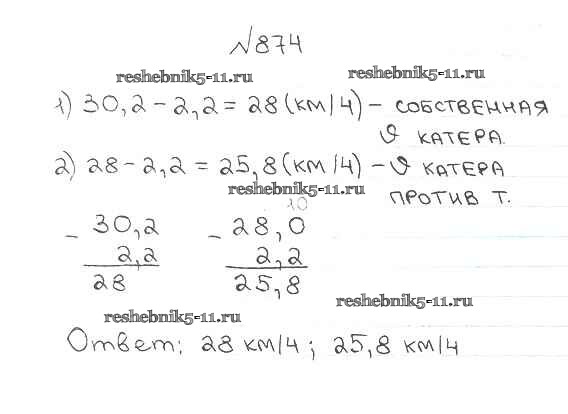 №874
reshebnik5-11.ru reshebnik5-11.ru
1) 30,2 - 2,2 = 28 (км/ч) - собственная
v катера.
2) 28 - 2,2 = 25,8 (км/ч) - v катера
reshebnik5-11.ru
против т.
10
- 30,2 - 28,0
2,2 2,2
28 25,8
reshebnik5-11.ru
reshebnik5-11.ru
Ответ: 28 км/ч; 25,8 км/ч